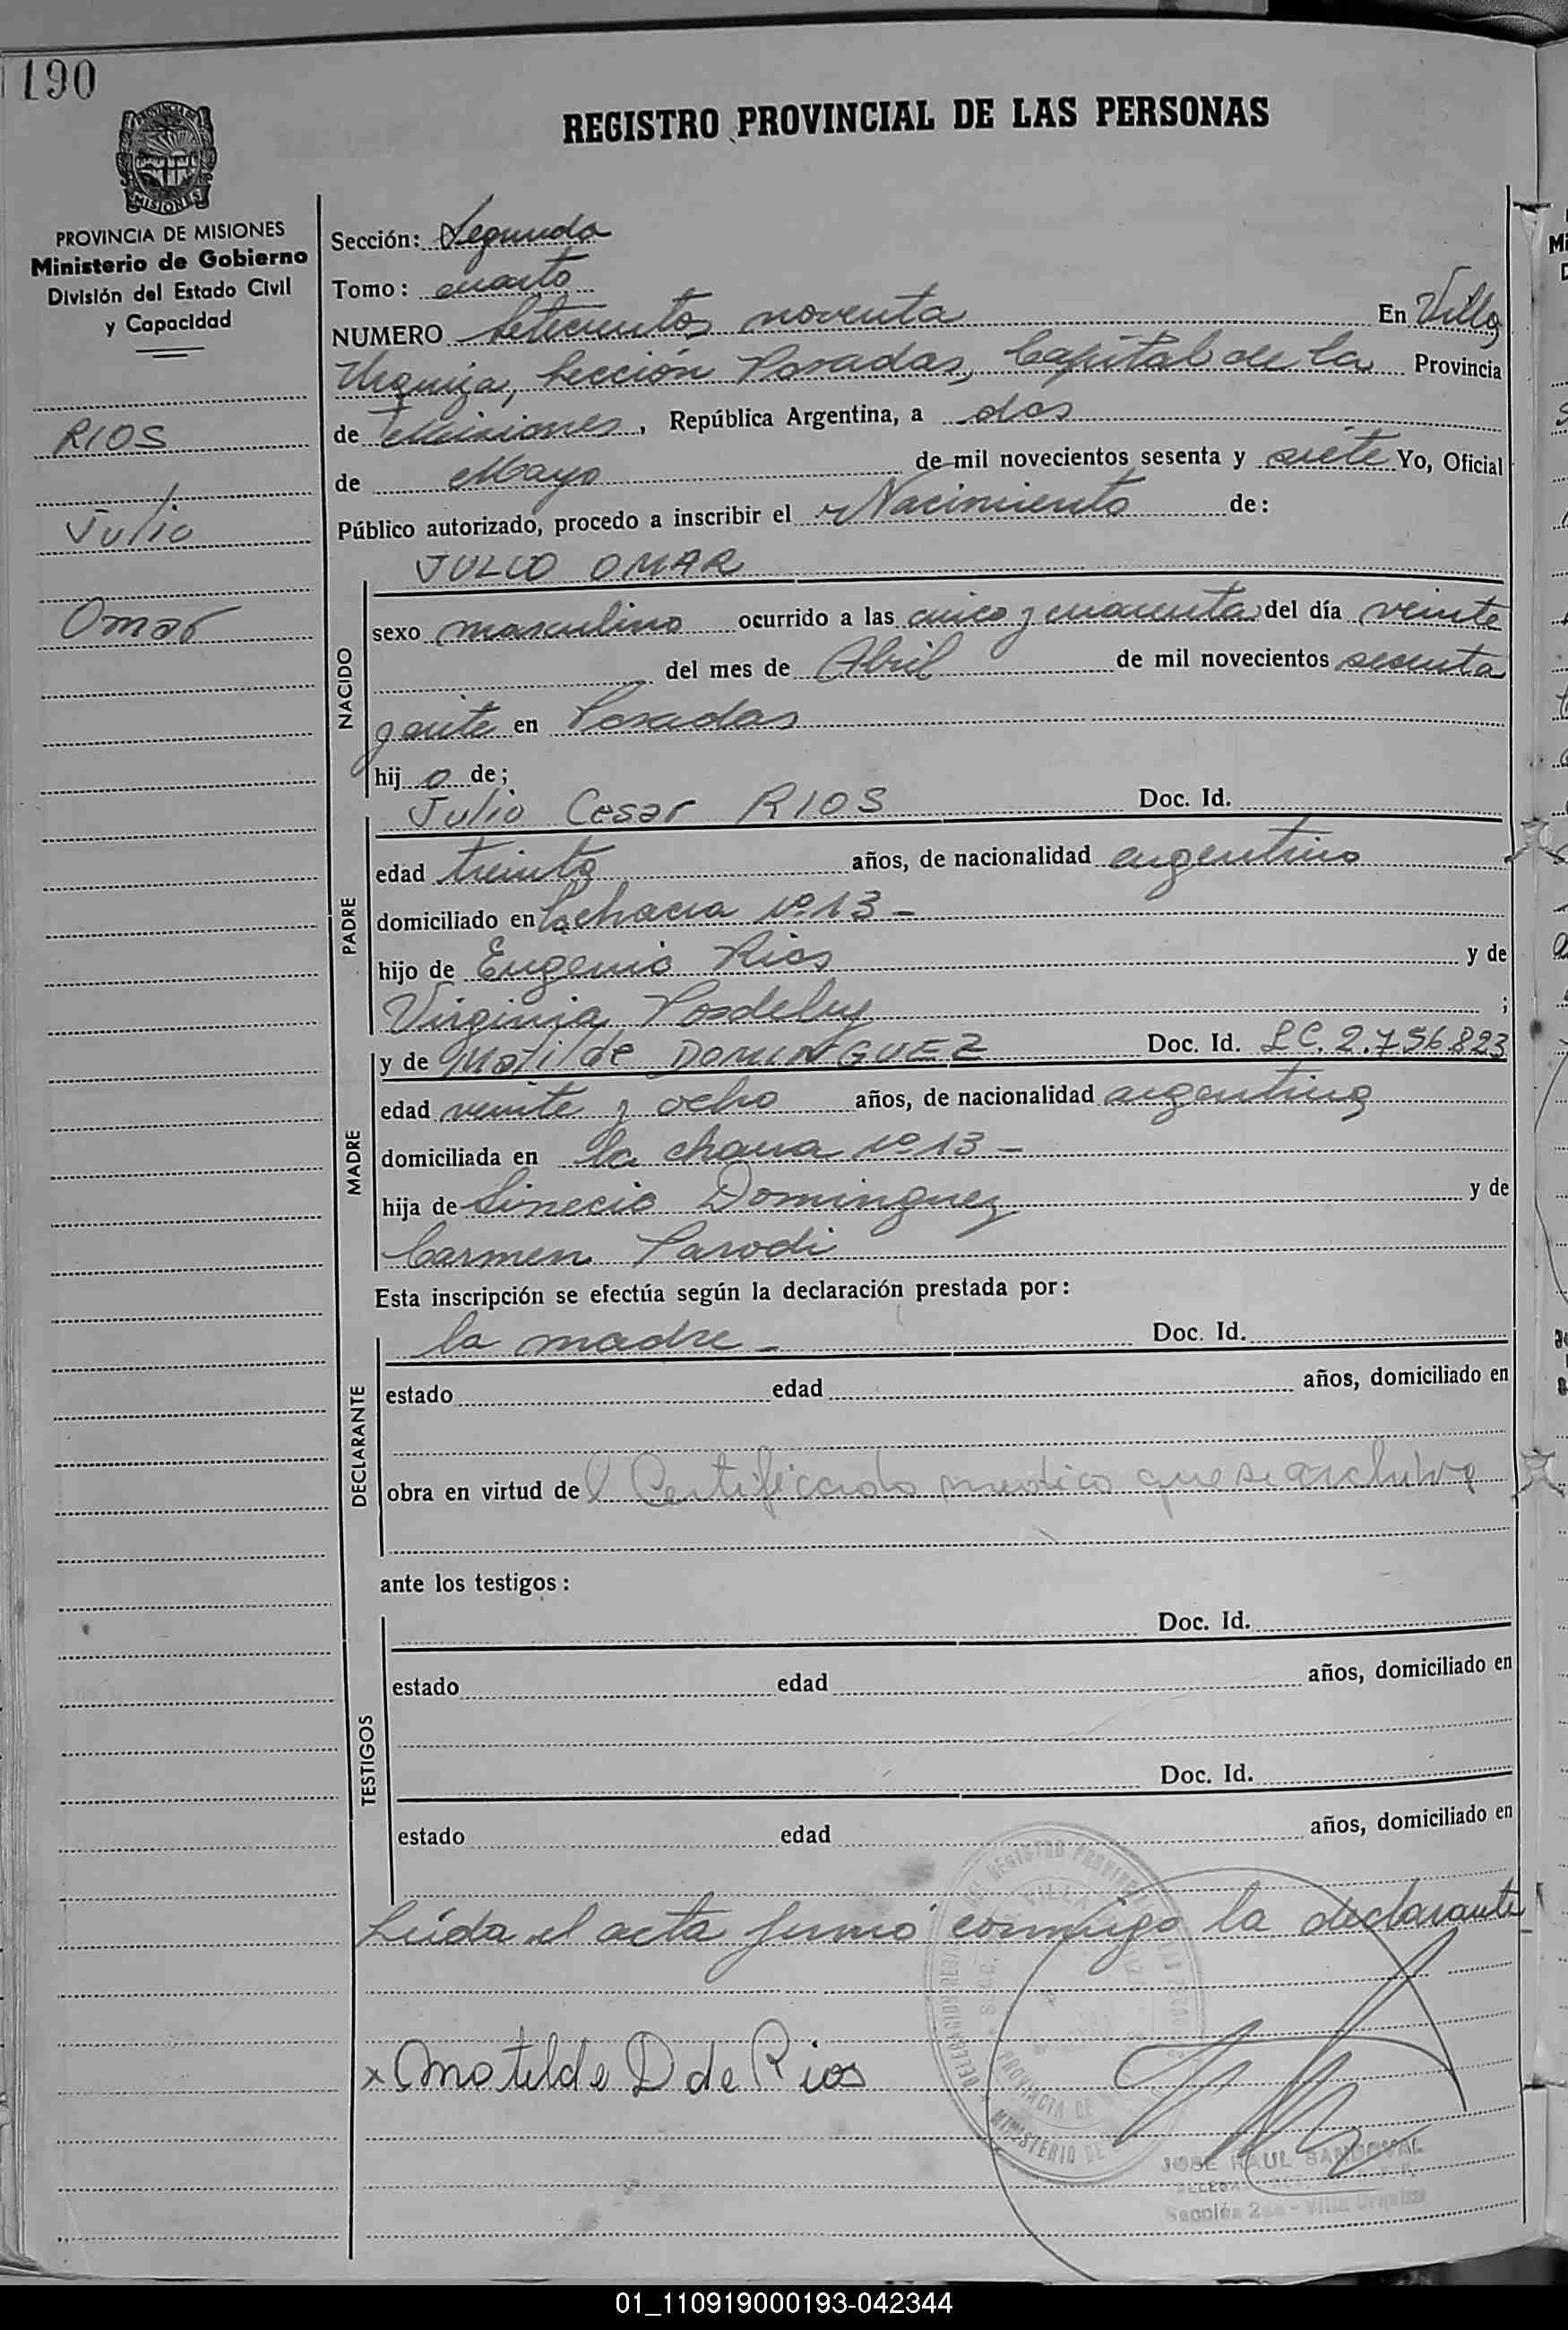 190
REGISTRO PROVINCIAL DE LAS PERSONAS
MISIONES
PROVINCIA DE MISIONES
Ministerio de Gobierno
División del Estado Civil
y Capacidad
RIOS
Julio
Omar
Sección: Segunda
Tomo: cuarto
NUMERO Setecientos noventa En Villa
Urquiza, Sección Posadas, Capital de la Provincia
de Misiones, República Argentina, a dos
de Mayo de mil novecientos sesenta y siete Yo, Oficial
Público autorizado, procedo a inscribir el Nacimiento de:
JULIO OMAR
NACIDO
sexo masculino ocurrido a las cinco y cuarenta del día veinte
del mes de Abril de mil novecientos sesenta
y siete en Posadas
hijo de;
PADRE
Julio Cesar RIOS Doc. Id.
edad treinta años, de nacionalidad argentino
domiciliado en la chacra nº 13 -
hijo de Eugenio Rios y de
Virginia ;
MADRE
y de Matilde DOMINGUEZ Doc. Id. LC. 2.756.823
edad veinte y ocho años, de nacionalidad argentina
domiciliada en la chacra nº 13 -
hija de Sinecio Dominguez y de
Carmen Parodi
Esta inscripción se efectúa según la declaración prestada por:
DECLARANTE
la madre - Doc. Id.
estado edad años, domiciliado en
obra en virtud del Certificado medico que se archiva
ante los testigos:
TESTIGOS
Doc. Id.
estado edad años, domiciliado en
Doc. Id.
estado edad años, domiciliado en
Leída el acta firmó conmigo la declarante
x Matilde D de Rios
JOSE RAUL SANDOVAL
Sección 2da - Villa Urquiza
01_110919000193-042344